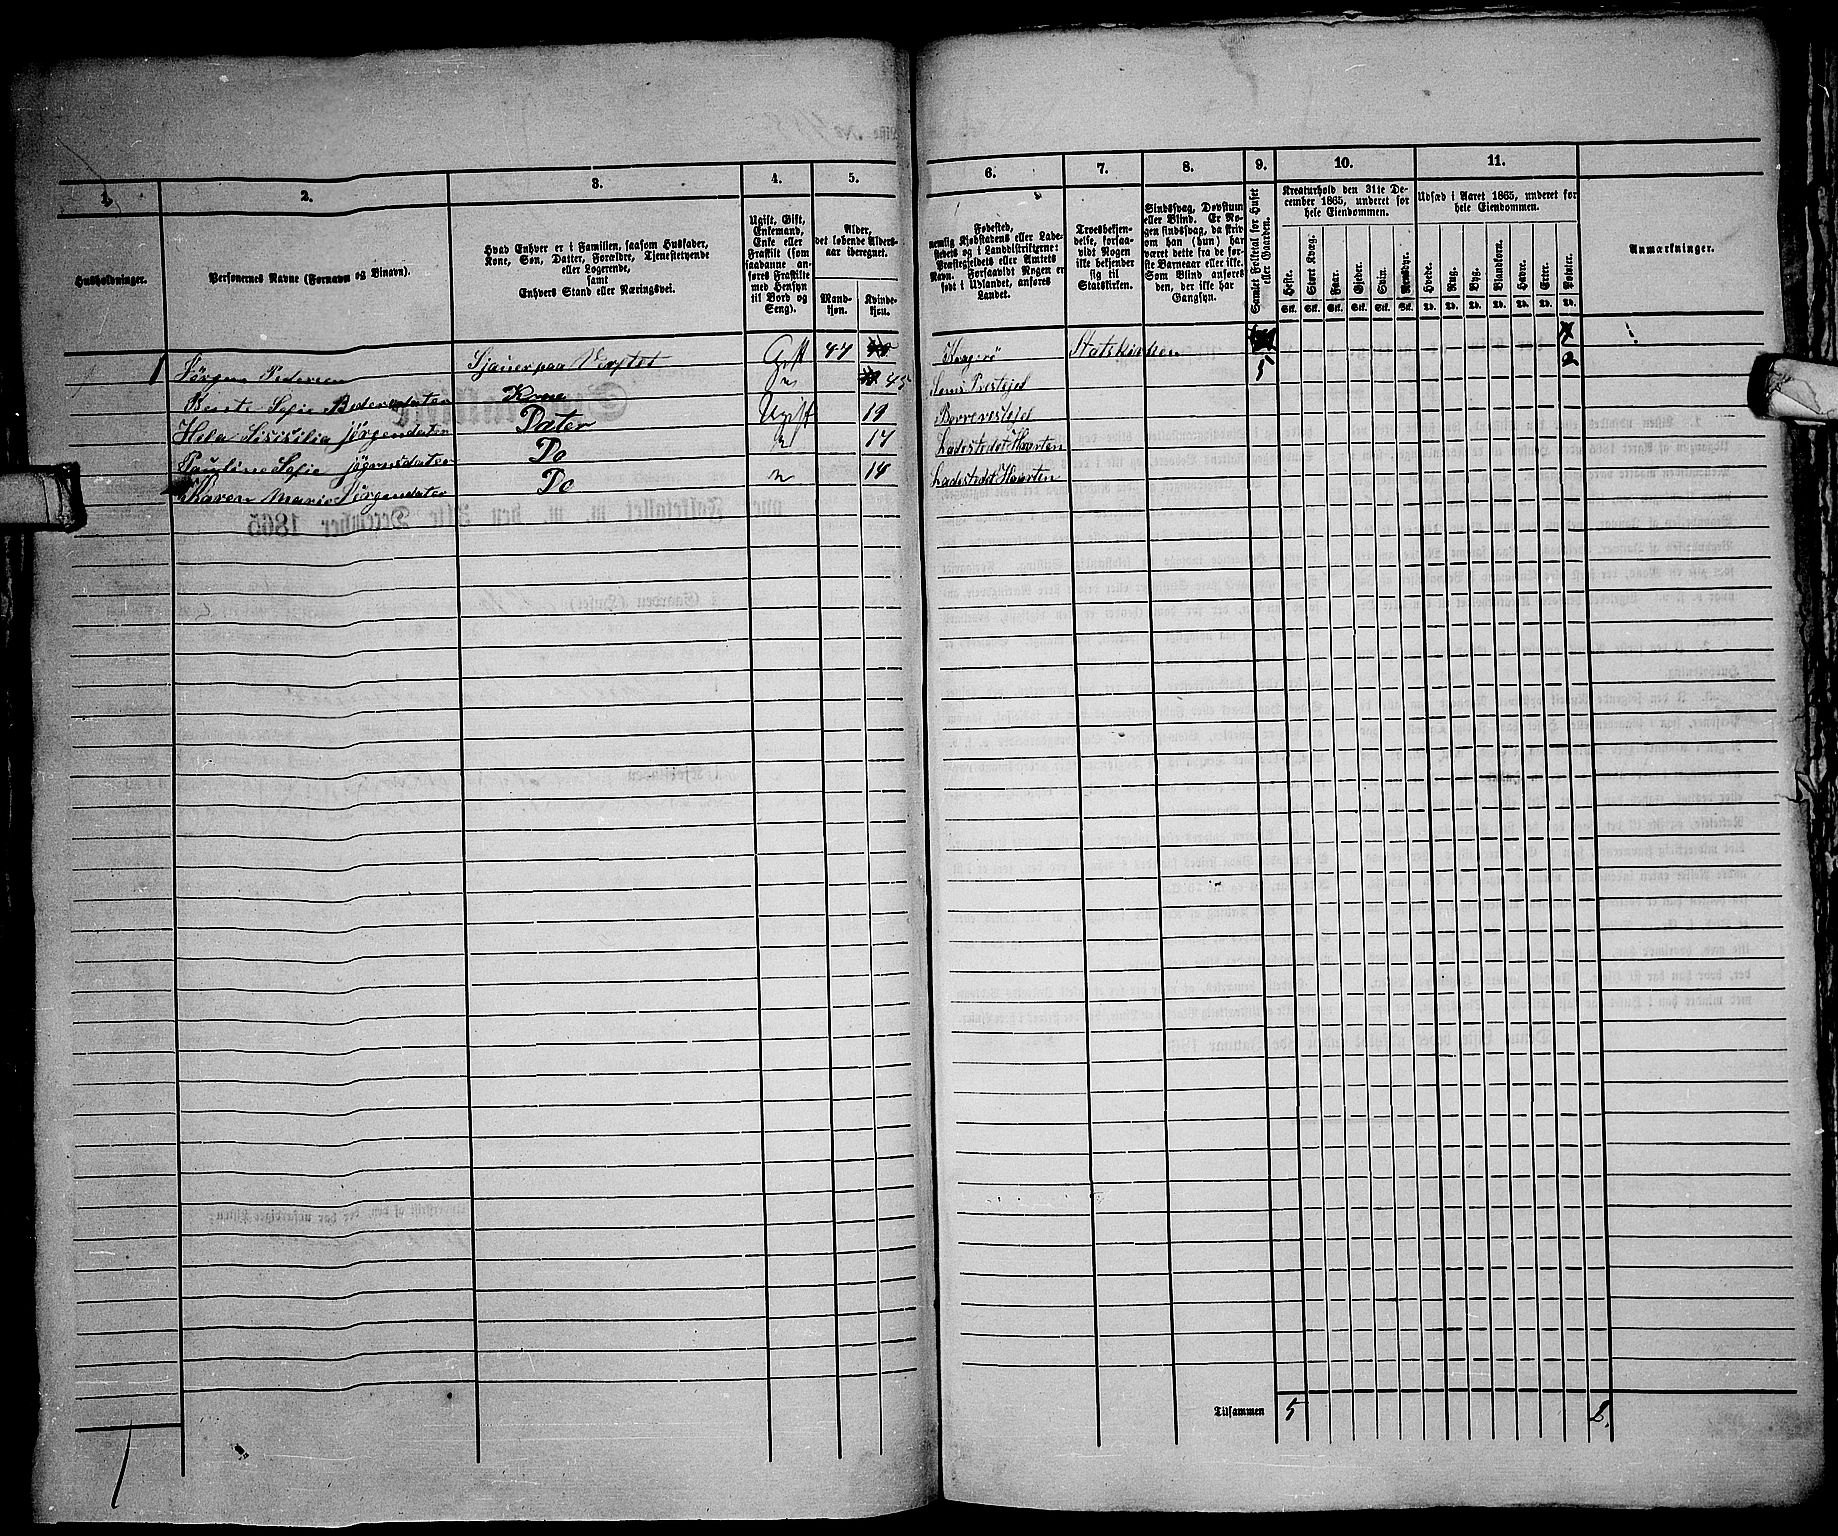 1. 2. 3. 4. 5. 6. 7. 8. 9. 10. 11.
Husholdninger.
Personernes Navne (Fornavn og Binavn).
Hvad Enhver er i Familien, saasom Husfader,
Kone, Søn, Datter, Forældre, Tjenestetyende
eller Logerende,
samt
Enhvers Stand eller Næringsvei.
Ugift, Gift,
Enkemand,
Enke eller
Fraskilt (som
saadanne an-
føres Fraskilte
med Hensyn
til Bord og
Seng).
Alder,
det løbende Alders-
aar iberegnet.
Mand-
kjøn.
Kvinde-
kjøn.
Fødested,
nemlig Kjøbstadens eller Lade-
stedets og i Landdistrikterne:
Præstegjeldets eller Amtets
Navn. Forsaavidt Nogen er
født i Udlandet, anføres
Landet.
Troesbekjen-
delse, forsaa-
vidt Nogen
ikke bekjender
sig til
Statskirken.
Sindssvag, Døvstum
eller Blind. Er No-
gen sindssvag, da skriv
om han (hun) har
været dette fra de før-
ste Barneaar eller ikke.
Som Blind anføres
den, der ikke har
Gangsyn.
Samlet Folketal for Huset
eller Gaarden.
Kreaturhold den 31te De-
cember 1865, underet for
hele Eiendommen.
Heste. Stort Kvæg. Faar. Gjeder. Sviin. Rensdyr.
Stk. Stk. Stk. Stk. Stk. Stk.
Udsæd i Aaret 1865, underet for
hele Eiendommen.
Hvede. Rug. Byg. Blandkorn. Havre. Erter. Poteter.
Anmærkninger.
1 Jörgen Pedersen Sjauer paa Verftet Gift 47 Kragerö Statskirken 5 2
Bente Sofie Pedersdater Kone 45 Sems Prestejel
Hela Sisisilia Jörgendater Dater Ugift 19 Borreprestejel
Pauline Sofie Jögensdater Do 17 Ladestedet Horten
Karen Marie Jörgendater Do 14 Ladestedet Horten
Tilsammen 5 2.
1